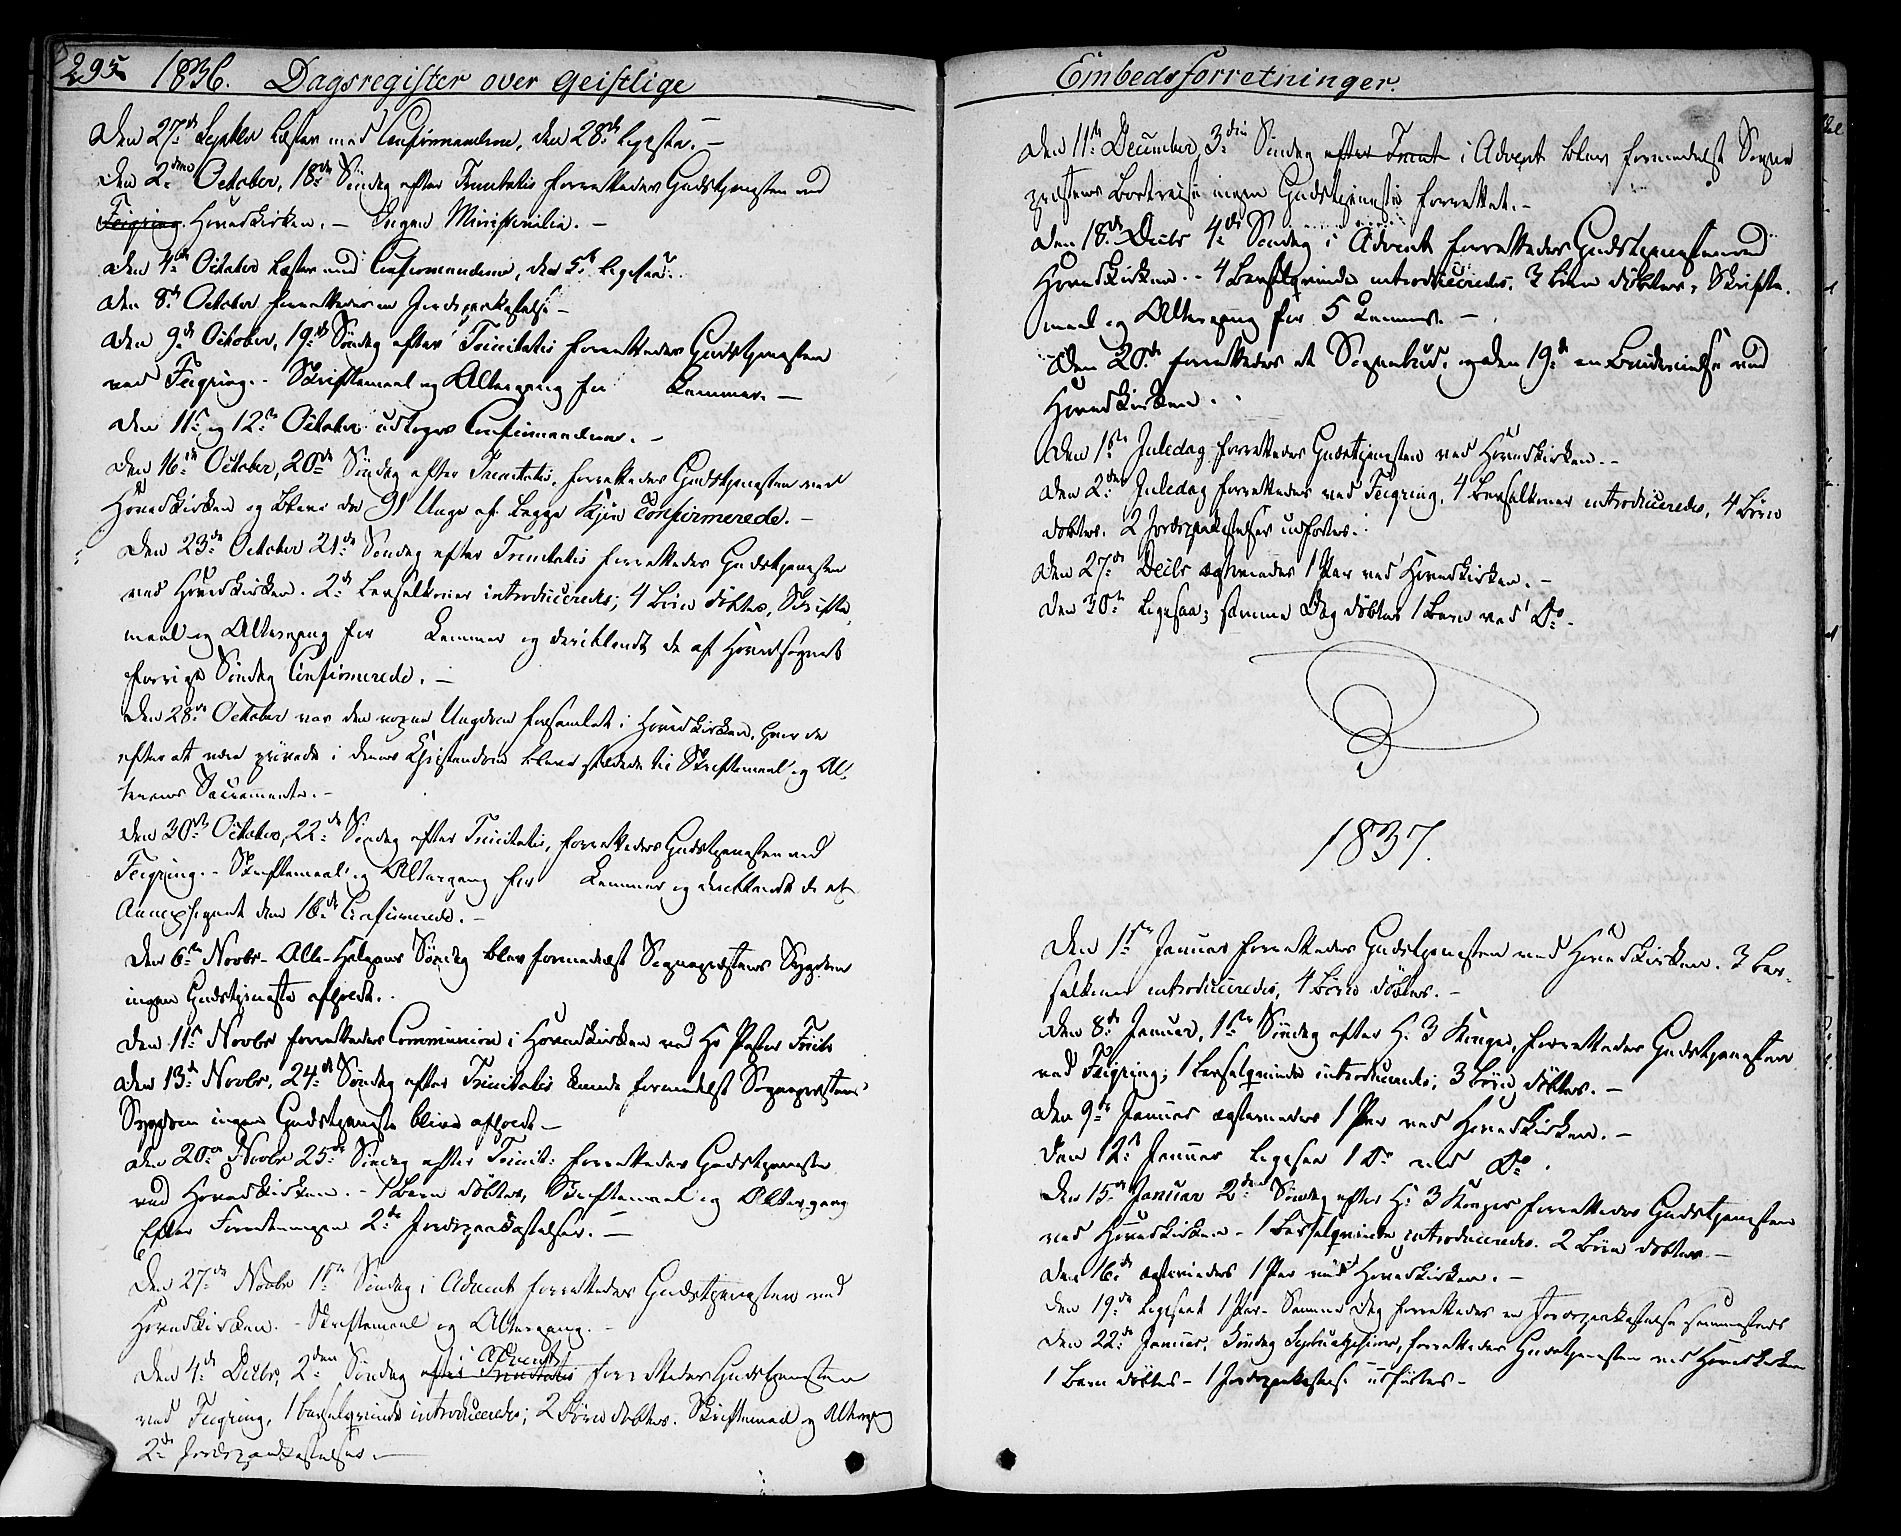 295 1836. Dagsregister over geistlige
Den 27de Septbr læstes med Confirmanderne, den 28de ligesaa. –
Den 2den October, 18de Søndag efter Trinitatis forrettedes Gudstjenesten ved
Feiring Hovedkirken. – Ingen Ministerialia. –
Den 4de October læstes med Confirmanderne, den 5te ligesaa.
Den 8de October forrettedes en Jordspaakastelse –
Den 9de October, 19de Søndag efter Trinitatis forrettedes Gudstjenesten
ved Feiring. – Skriftemaal og Altergang for Lemmer. –
Den 11te og 12te October udtoges Confirmanderne. –
Den 16de October, 20de Søndag efter Trinitatis, forrettedes Gudstjenesten ved
Hovedkirken og bleve da 91 Unge af begge Kjøn Confirmerede. –
Den 23de October 21de Søndag efter Trinitatis forrettedes Gudstjenesten
ved Hovedkirken. 2de Barselkoner introduceredes; 4 Børn døbtes, Skrifte-
maal og Altergang for Lemmer og deriblandt de af Hovedsognets
forrige Søndag Confirmerede. –
Den 28de October var den Ungdom forsamlet i Hovedkirken, hvor de
efter at være prøvede i deres Christendom bleve stedede til Skriftemaal og Al-
terens Sacramente. –
Den 30te October, 22de Søndag efter Trinitatis, forrettedes Gudstjenesten ved
Feiring. – Skriftemaal og Altergang for Lemmer og deriblandt de af
Annexsognet den 16de Confirmerede. –
Den 6te Novbr – Alle-Helgens Søndag blev formedelst Sognepræstens Sygdom
ingen Gudstjeneste afholdt. –
Den 11te Novbr forrettedes Communion i Hovedkirken ved Hr Pastor
Den 13de Novbr, 24de Søndag efter Trinitatis kunde formedelst Sognepræstens
Sygdom ingen Gudstjeneste blive afholdt –
Den 20de Novbr 25de Søndag efter Trinit: forrettedes Gudstjeneste
ved Hovedkirken. – 1 Barn døbtes, Skriftemaal og Altergang
Efter Forretningen 2de Jordspaakastelser. –
Den 27de Novbr 1ste Søndag i Advent forrettedes Gudstjenesten ved
Hovedkirken. – Skriftemaal og Altergang. –
i Advent
Den 4de Decbr, 2den Søndag efter Trinitatis forrettedes Gudstjenesten
ved Feiring, 1 Barselqvinde introduceredes; 2 Børn døbtes. Skriftemaal og Altergang
2de Jordspaakastelser. –
Embedsforretninger.
Den 11te December, 3die Søndag efter Trinit i Advent blev formedelst Sogne
præstens Bortreise ingen Gudstjeneste forrettet. –
Den 18de Decbr 4de Søndag i Advent forrettedes Gudstjenesten ved
Hovedkirken. – 4 Barselqvinder introduceredes. 3 Børn døbtes, Skrifte-
maal og Altergang for 5 Lemmer. –
Den 20de forrettedes et Sognebud, og den 19de en Brudevielse ved
Hovedkirken. .
Den 1ste Juledag forrettedes Gudstjenesten ved Hovedkirken. –
Den 2den Juledag forrettedes ved Feiring, 4 Barselkoner introduceredes, 4 Børn
døbtes. 2 Jordspaakastelser udførtes.
Den 27de Decbr ægteviedes 1 Par ved Hovedkirken. –
Den 30te ligesaa; samme Dag døbtes 1 Barn ved Do –
1837.
Den 1ste Januar forrettedes Gudstjenesten ved Hovedkirken. 3 Bar-
selkoner introduceredes, 4 Børn døbtes. –
Den 8de Januar, 1ste Søndag efter H: 3 Konger, forrettedes Gudstjenesten
ved Feiring; 1 Barselqvinde introduceredes; 3 Børn døbtes. –
Den 9de Januar ægteviedes 1 Par ved Hovedkirken. –
Den 12te Januar ligesaa 1 Do ved Do.
Den 15de Januar 2den Søndag efter H: 3 Konger forrettedes Gudstjenesten
ved Hovedkirken – 1 Barselqvinde introduceredes. 2 Børn døbtes. –
Den 16de ægteviedes 1 Par ved Hovedkirken. –
Den 19de ligesaa 1 Par – Samme Dag forrettedes en Jordspaakastelse sammesteds
Den 22de Januar, Søndag Septuagesima, forrettedes Gudstjenesten ved Hovedkirken
1 Barn døbtes – 1 Jordspaakastelse udførtes –